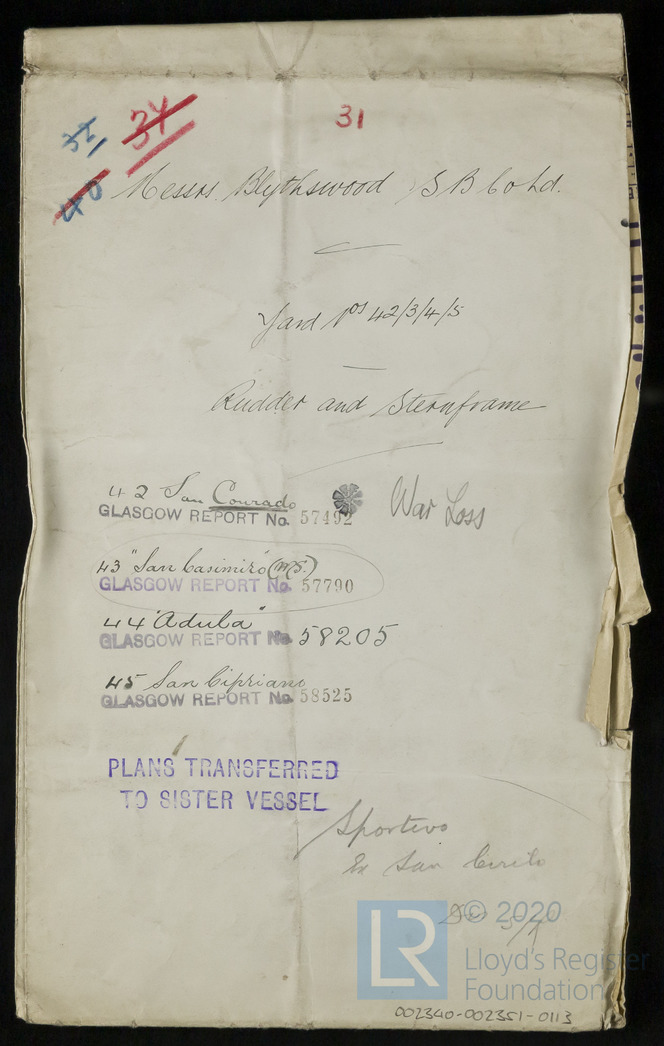 31
34
32
40
Messrs. Blythswood S B Co Ld.
Yard Nos 42/3/4/5
Rudder and Sternframe
42 San Conrado
GLASGOW REPORT No. 57492
War Loss
43 "San Casimiro" (MS.)
GLASGOW REPORT No. 57790
44 "Adula"
GLASGOW REPORT No. 58205
45 San Cipriano
GLASGOW REPORT No. 58525
PLANS TRANSFERRED
TO SISTER VESSEL
Sportivo
Ex San Cirilo
LR © 2020
Lloyd's Register
Foundation
002340-002351-0113